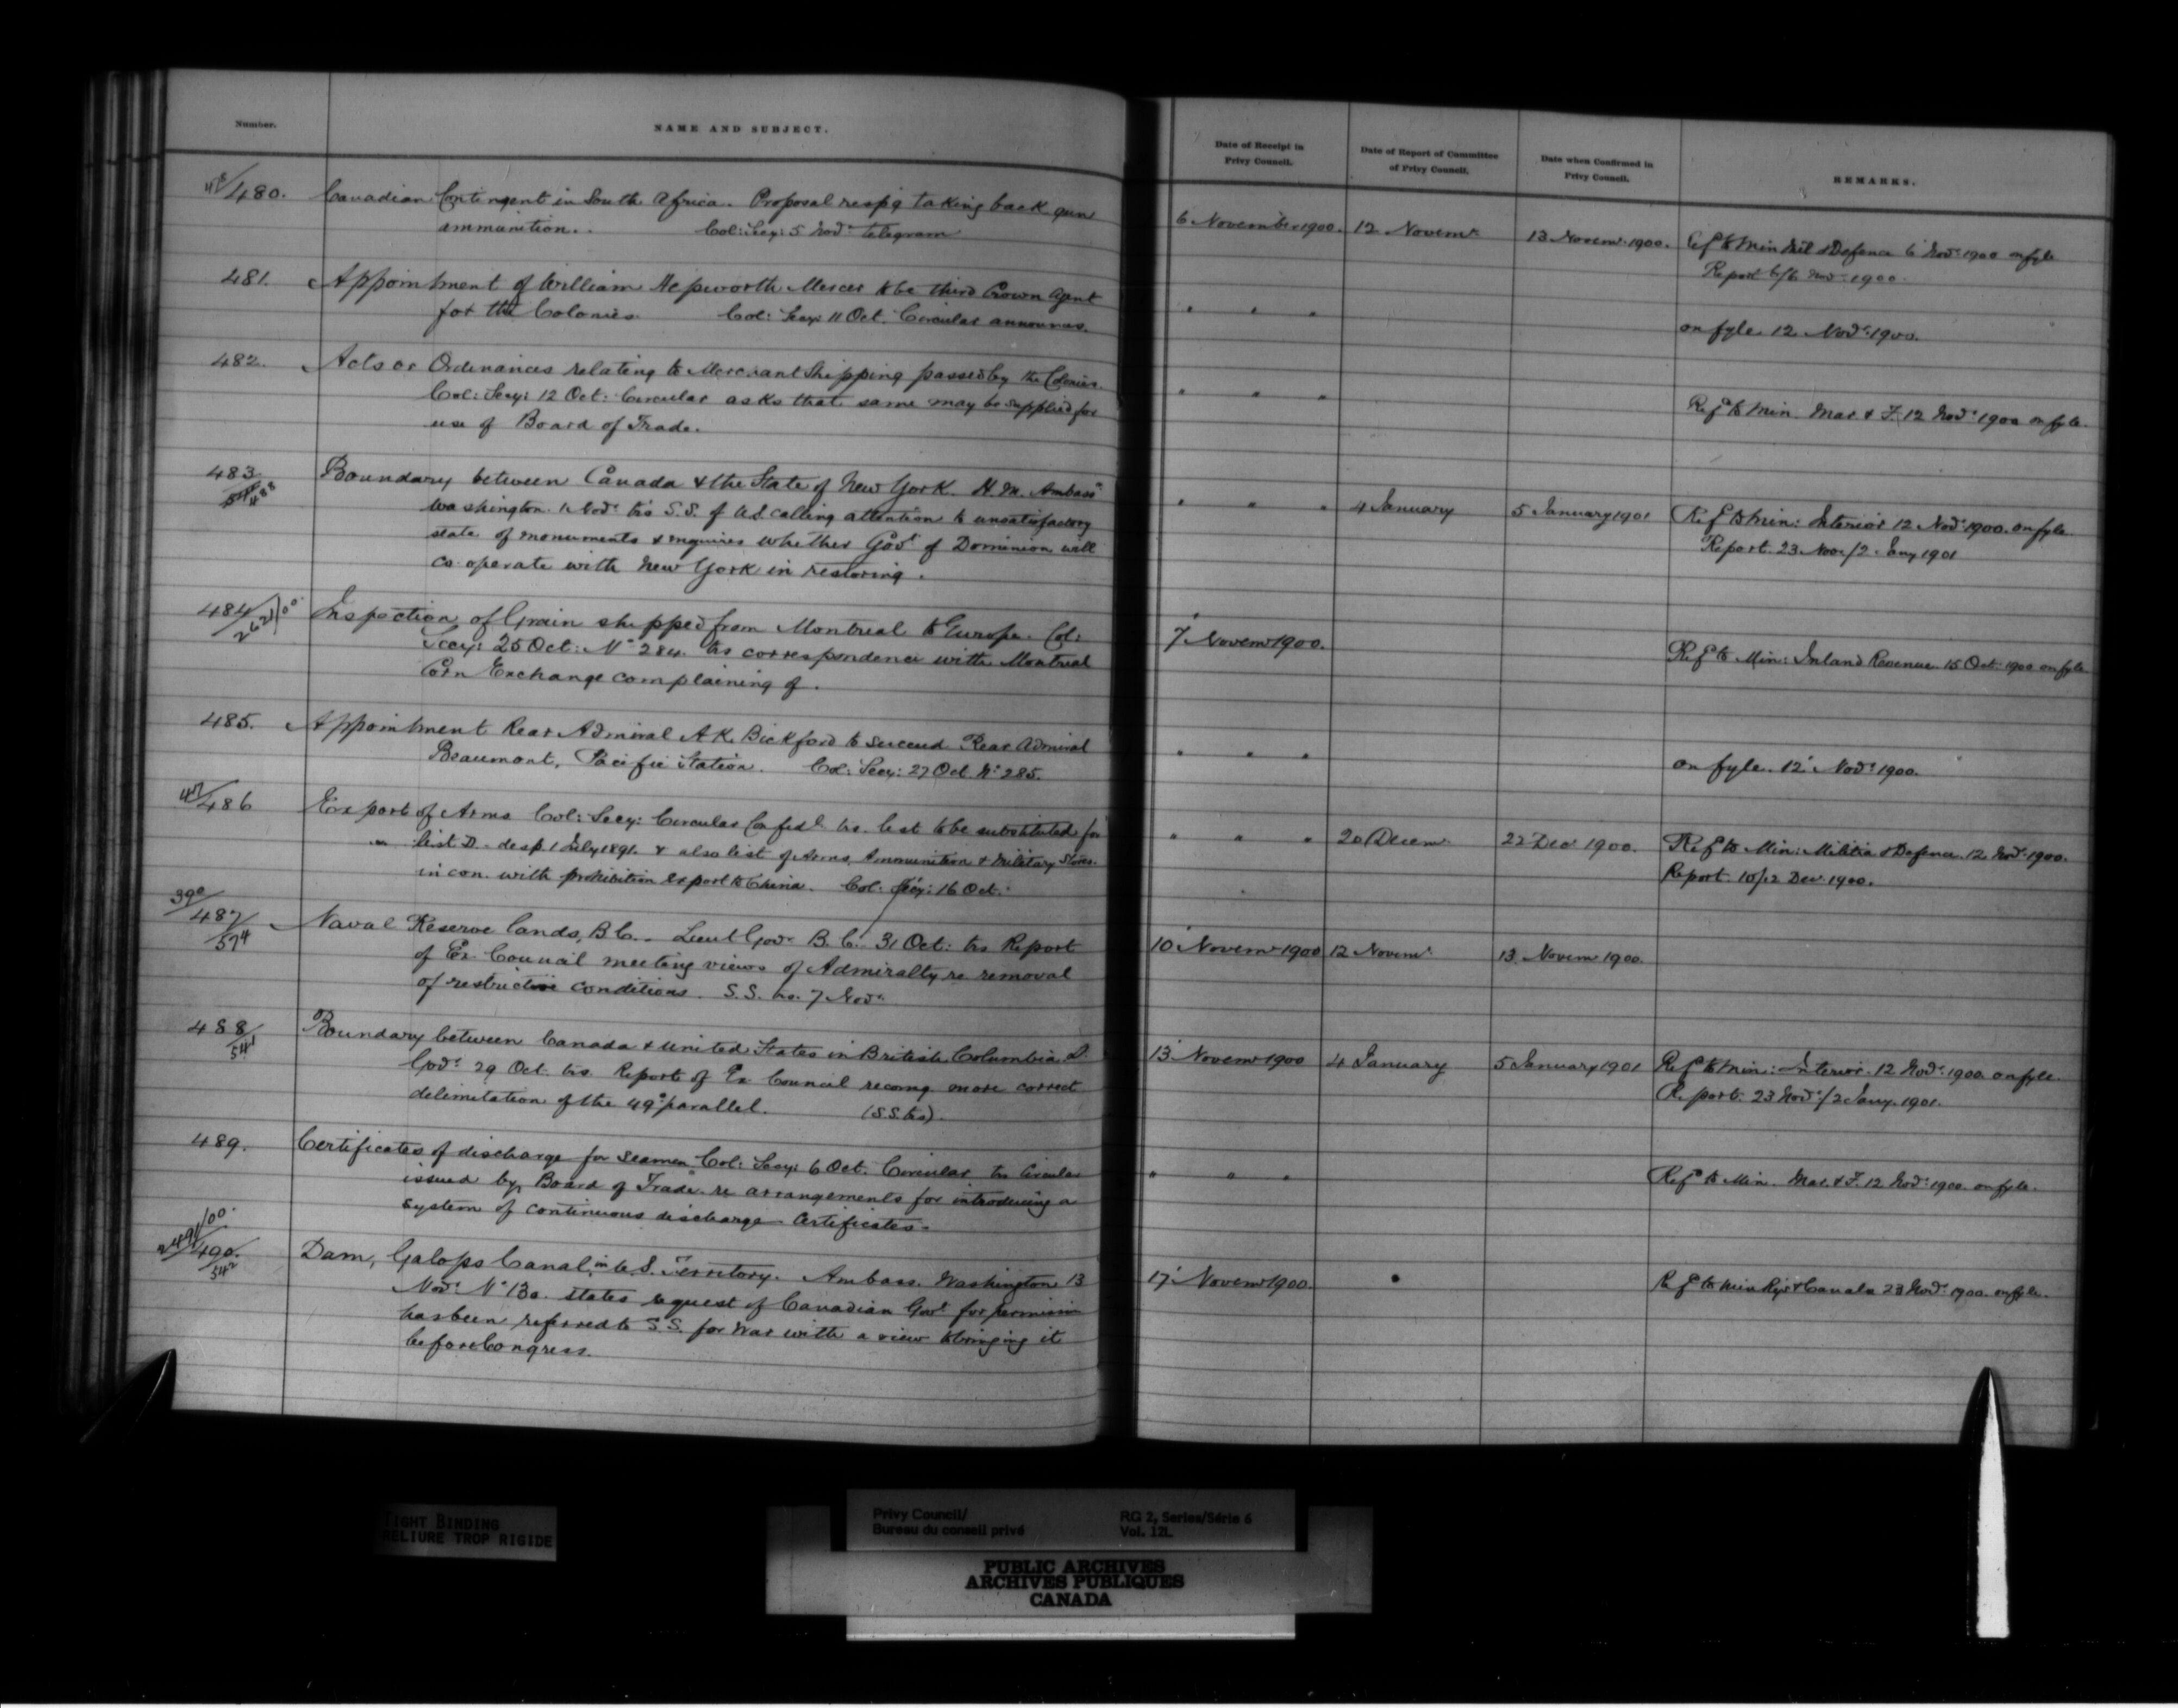 Number.
NAME AND SUBJECT.
Date of Receipt in
Privy Council.
Date of Report of Committee
of Privy Council.
Date when Confirmed in
Privy Council.
REMARKS.
480. Canadian Contingent in South Africa. Proposal respg taking back gun
ammunition. Col: Secy: 5 Novr telegram
6 November 1900. 12 Novemr 13 Novemr 1900. Refd to Min Mil & Defence 6 Novr 1900 on fyle
Report 6/6 Novr 1900.
481. Appointment of William Hepworth Mercer to be third Crown Agent
for the Colonies. Col: Secy: 11 Oct. Circular announces.
" " " on fyle 12 Novr 1900.
482. Acts or Ordinances relating to Merchant Shipping passed by the Colonies.
Col: Secy: 12 Oct: Circular asks that same may be supplied for
use of Board of Trade.
" " " Refd to Min. Mar. & F. 12 Novr 1900 on fyle.
483 Boundary between Canada & the State of New York. H. M. Ambassr
488
Washington 1 Novr trs S.S. of U.S. calling attention to unsatisfactory
state of monuments & enquires whether Govt of Dominion will
co-operate with New York in restoring.
" " " 4 January 5 January 1901 Refd to Min: Interior 12 Novr 1900. on fyle.
Report 23 Nov./2 Jany 1901
484/2621/00 Inspection of Grain shipped from Montreal to Europe. Col:
Secy: 25 Oct: No 284. trs correspondence with Montreal
Corn Exchange complaining of.
7 Novemr 1900. Refd to Min: Inland Revenue 15 Oct. 1900 on fyle
485. Appointment Rear Admiral A.K. Bickford to succeed Rear Admiral
Beaumont, Pacific Station. Col: Secy: 27 Oct. No 285.
" " " on fyle. 12 Novr 1900.
486 Export of Arms Col: Secy: Circular Confidl trs. list to be substituted for
list D. desp 1 July 1891. & also list of Arms, Ammunition & Military Stores.
in con. with prohibition export to China. Col: Secy: 16 Oct.
" " " 20 Decem. 22 Decr 1900. Refd to Min: Militia & Defence 12 Novr 1900.
Report 10/12 Decr 1900.
390/487/574 Naval Reserve lands, B.C. Lieut Govr B.C. 31 Oct: trs Report
of Ex. Council meeting views of Admiralty re removal
of restrictive conditions. S.S. trs. 7 Novr
10 Novemr 1900 12 Novemr 13 Novemr 1900.
488/541 Boundary between Canada & United States in British Columbia Lt
Govr 29 Oct. trs Report of Ex Council recomg. more correct
delimitation of the 49° parallel. (S.S. trs).
13 Novemr 1900 4 January 5 January 1901 Refd to Min: Interior. 12 Novr 1900. on fyle.
Report. 23 Novr/2 Jany. 1901.
489. Certificates of discharge for seamen Col: Secy: 6 Oct. Circular trs Circular
issued by Board of Trade re arrangements for introducing a
system of continuous discharge Certificates.
" " " Refd to Min. Mar. & F. 12 Novr 1900. on fyle.
2491/00.
490./542 Dam, Galops Canal, in U.S. Territory. Ambass. Washington 13
Novr No 130. states request of Canadian Govt for permission
has been referred to S.S. for War with a view to bringing it
before Congress.
17 Novemr 1900. Refd to Min Rys & Canals 23 Novr 1900. on fyle.
TIGHT BINDING
RELIURE TROP RIGIDE
Privy Council/
Bureau du conseil privé
RG 2, Series/Série 6
Vol. 12L
PUBLIC ARCHIVES
ARCHIVES PUBLIQUES
CANADA